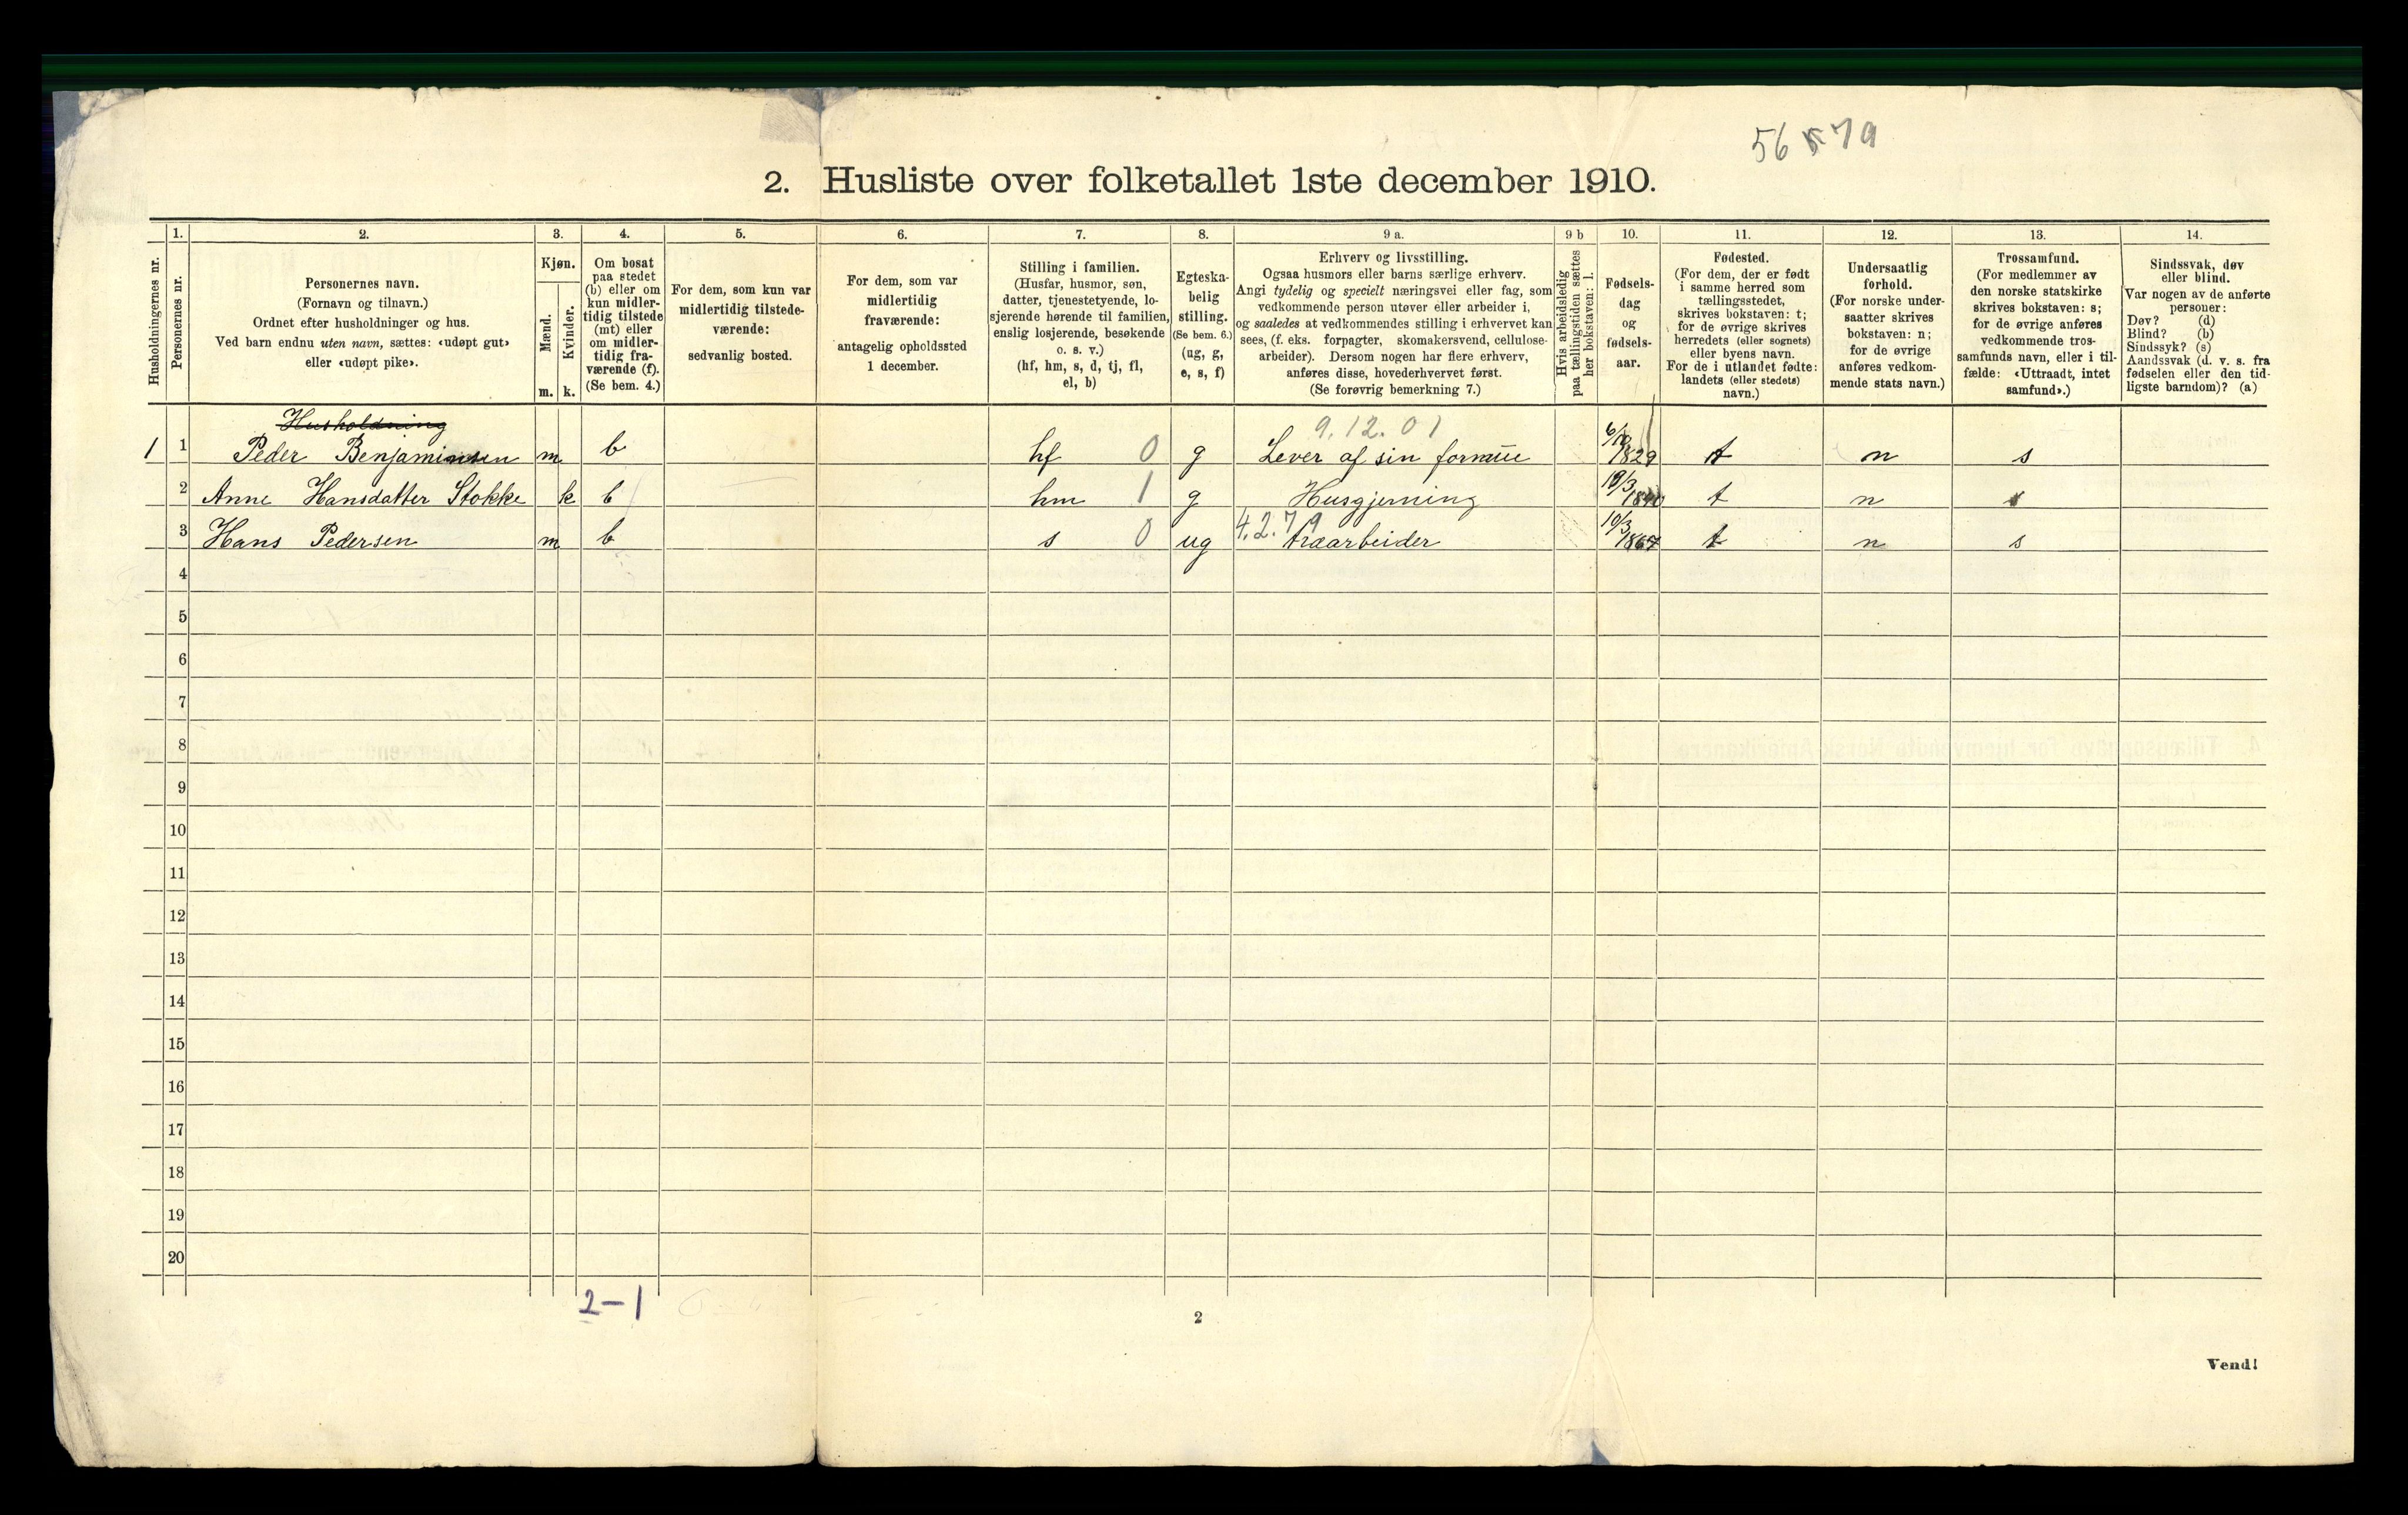 56 79
2. Husliste over folketallet 1ste december 1910.
1. 2. 3. 4. 5. 6. 7. 8. 9 a. 9 b 10. 11. 12. 13. 14.
Husholdningernes nr.
Personernes nr.
Personernes navn.
(Fornavn og tilnavn.)
Ordnet efter husholdninger og hus.
Ved barn endnu uten navn, sættes: «udøpt gut»
eller «udøpt pike».
Kjøn.
Mænd.
Kvinder.
m. k.
Om bosat
paa stedet
(b) eller om
kun midler-
tidig tilstede
(mt) eller
om midler-
tidig fra-
værende (f).
(Se bem. 4.)
For dem, som kun var
midlertidig tilstede-
værende:
sedvanlig bosted.
For dem, som var
midlertidig
fraværende:
antagelig opholdssted
1 december.
Stilling i familien.
(Husfar, husmor, søn,
datter, tjenestetyende, lo-
sjerende hørende til familien,
enslig losjerende, besøkende
o. s. v.)
(hf, hm, s, d, tj, fl,
el, b)
Egteska-
belig
stilling.
(Se bem. 6.)
(ug, g,
e, s, f)
Erhverv og livsstilling.
Ogsaa husmors eller barns særlige erhverv.
Angi tydelig og specielt næringsvei eller fag, som
vedkommende person utøver eller arbeider i,
og saaledes at vedkommendes stilling i erhvervet kan
sees, (f. eks. forpagter, skomakersvend, cellulose-
arbeider). Dersom nogen har flere erhverv,
anføres disse, hovederhvervet først.
(Se forøvrig bemerkning 7.)
Hvis arbeidsledig
paa tællingstiden sættes
her bokstaven: l.
Fødsels-
dag
og
fødsels-
aar.
Fødested.
(For dem, der er født
i samme herred som
tællingsstedet,
skrives bokstaven: t;
for de øvrige skrives
herredets (eller sognets)
eller byens navn.
For de i utlandet fødte:
landets (eller stedets)
navn.)
Undersaatlig
forhold.
(For norske under-
saatter skrives
bokstaven: n;
for de øvrige
anføres vedkom-
mende stats navn.)
Trossamfund.
(For medlemmer av
den norske statskirke
skrives bokstaven: s;
for de øvrige anføres
vedkommende tros-
samfunds navn, eller i til-
fælde: «Uttraadt, intet
samfund».)
Sindssvak, døv
eller blind.
Var nogen av de anførte
personer:
Døv? (d)
Blind? (b)
Sindssyk? (s)
Aandssvak (d. v. s. fra
fødselen eller den tid-
ligste barndom)? (a)
Husholdning
9.12.01
1 1 Peder Benjaminsen m b hf 0 g Lever af sin formue 1829 t n s
2 Anne Hansdatter Stokke k b hm 1 g Husgjerning 1840 t n s
4.2.79
3 Hans Pedersen m b s 0 ug træarbeider 10/3 1867 t n s
4
5
6
7
8
9
10
11
12
13
14
15
16
17
18
19
20
2-1
2
Vend!